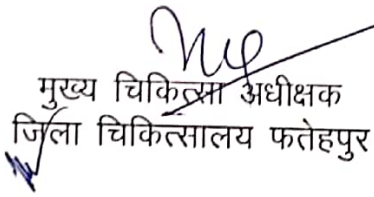 मुख्य चिकित्सा अधीक्षक
जिला चिकित्सालय फतेहपुर